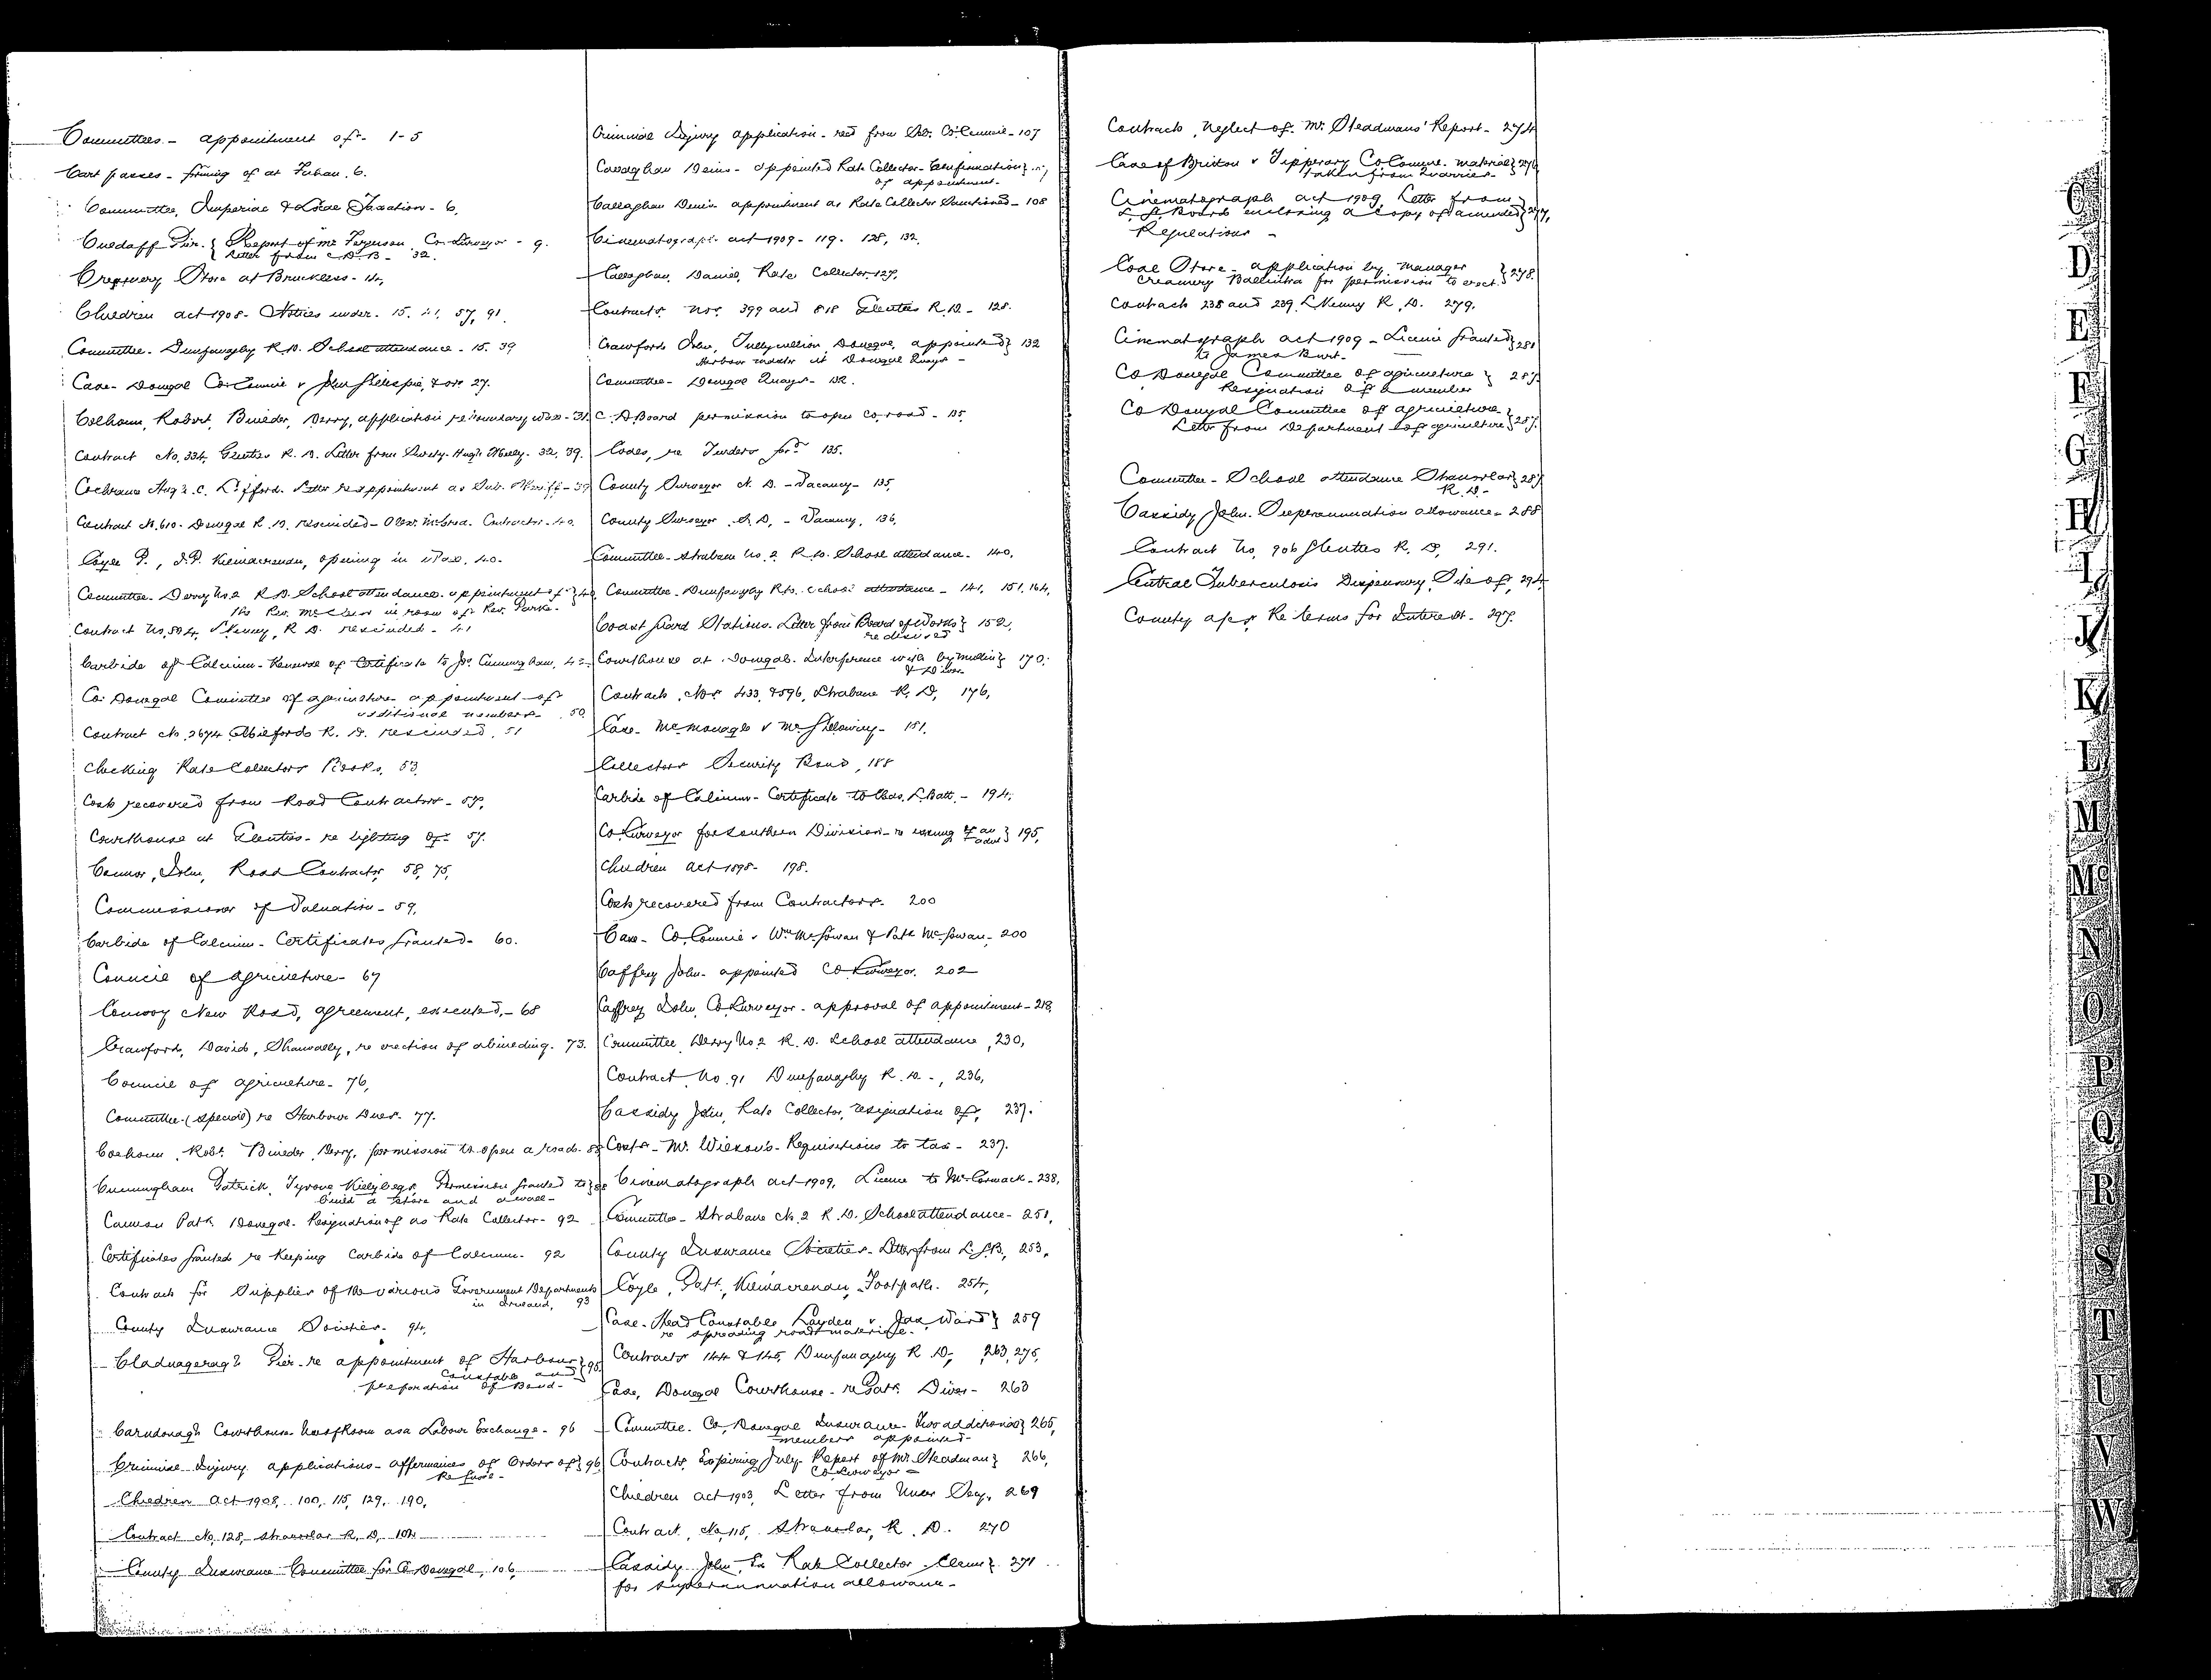 Committees - appointment of - 1-5
Cart passes - forming of at Fahan. 6.
Committee, Imperial & Local Taxation - 6.
Culdaff Pier. { Report of Mr Ferguson Co. Surveyor - 9.
Letter from C.D.B - 32.
Creamery Store at Bruckless - 14,
Children act 1908 - Notices under - 15. 21, 57, 91.
Committee - Dunfanaghy R.D. School attendance - 15. 39
Case - Donegal Co. Council v John Gillespie & ors 27.
Colhoun, Robert, Builder, Derry, application re boundary wall - 31.
Contract No. 334, Glenties R.D. Letter from Surety - Hugh 32, 39.
Cochrane Hugh C. Lifford. Letter re appointment as Sub. Sheriff - 39
Contract No. 610 - Donegal R.D. rescinded - Contractor - 40.
Coyle P., J.P. Kilmacrenan, opening in wall. 40.
Committee - Derry No 2 R.D. School attendance - appointment of } 40
the Rev. McClean in room of Rev. Parke -
Contract No. 504, S'kenny, R.D. rescinded - 41
Carbide of Calcium - Renewal of Certificate to Js. Cunningham. 42
Co. Donegal Committee of agriculture appointment of
additional members - 50.
Contract No. 2674 R.D. rescinded. 51
Checking Rate Collectors Books, 53,
Costs recovered from Road Contractors - 57,
Courthouse at Glenties - re lighting of - 57.
Connor, John, Road Contractor, 58, 75,
Commissioner of Valuation - 59,
Carbide of Calcium - Certificates granted - 60.
Council of agriculture - 67
Convoy New Road, agreement, executed, - 68
Crawford, David, re erection of a building. 73.
Council of agriculture - 76,
Committee - (Special) re Harbour Dues - 77.
Colhoun Robt. Builder Derry, permission to open a road - 88
Cunningham Patrick, Tyrone Killybegs Permission granted to } 88
build a store and a wall -
Cannon Patk. Donegal - Resignation of as Rate Collector - 92
Certificates granted re Keeping Carbide of Calcium - 92
Contracts for Supplies of the various Government Departments
in Ireland, 93
County Insurance Societies - 94,
Cladnageragh Pier - re appointment of Harbour } 95.
Constable and
preparation of Bond -
Carndonagh Courthouse - Use of Room as a Labour Exchange - 96
Criminal Injury applications - affirmances of Orders of } 96
Refusal -
Children Act 1908, 100, 115, 129, 190,
Contract No. 128, Stranorlar R.D, 104
County Insurance Committee for Co Donegal, 106,
Criminal Injury application - recd from Co. Council - 107
Callaghan Denis - appointed Rate Collector - Confirmation }
of appointment -
Callaghan Denis - appointment as Rate Collector Sanctioned - 108
Cinematograph act 1909 - 119. 128, 132,
Callaghan, Daniel, Rate Collector 127,
Contracts Nos. 399 and 818 Glenties R.D. - 128.
Crawford John, Tullycullion Donegal, appointed } 132
Harbour master at Donegal Quays -
Committee - Donegal Quays - 132.
C.D. Board permission to open Co. road - 135.
Coals, re Tenders for 135.
County Surveyor N.D. - Vacancy - 135,
County Surveyor, S.D, - Vacancy, 136,
Committee - Strabane No. 2 R.D. School attendance - 140,
Committee - Dunfanaghy R.D. School attendance - 141, 151, 164,
Coast Guard Stations - Letter from Board of Works } 152,
re disused
Courthouse at Donegal - Interference with by Mullin } 170.
& Diver
Contracts Nos 433, & 596, Strabane R.D, 176,
Case - McMonagle v McGlowery - 181,
Collectors Security Bond, 188
Carbide of Calcium - Certificate to Chas. L. Batt. - 194,
Co. Surveyor for Southern Division - re issuing of an } 195,
advt
Children act 1898 - 198.
Costs recovered from Contractors - 200
Case - Co. Council v Wm McGowan & Patk McGowan - 200
Caffrey John - appointed Co Surveyor. 202
Caffrey John, Co. Surveyor - approval of appointment - 218,
Committee, Derry No 2 R.D. School attendance, 230,
Contract No. 91 Dunfanaghy R.D. -, 236,
Cassidy John, Rate Collector, resignation of, 237.
Costs - Mr. Wilson's - Requisitions to tax - 237.
Cinematograph act 1909, Licence to McCormack - 238,
Committee - Strabane No. 2 R.D. School attendance - 251,
County Insurance Societies - Letter from L.G.B, 253,
Coyle, Patt., Kilmacrenan, Footpath. 254,
Case - Head Constable Layden v Jas. Ward } 259
re spreading road material -
Contracts 144 & 145, Dunfanaghy R.D, 263, 275,
Case, Donegal Courthouse - re Patk. Diver - 263
Committee - Co, Donegal Insurance - Two additional } 265,
members appointed -
Contracts Expiring July - Report of Mr. Steadman } 266,
Co. Surveyor -
Children act 1903, Letter from Under Secy, 269
Contract, No. 115, Stranorlar, R.D. 270
Cassidy John, Ex Rate Collector - Claim } 271
for superannuation allowance -
Contracts, Neglect of - Mr. Steadmans' Report - 274
Case of Brixton v Tipperary Co Council - material } 276,
taken from Quarries -
Cinematograph act 1909, Letter from
L.G. Board enclosing a copy of amended } 277,
Regulations -
Coal Store - application by Manager } 278.
Creamery Ballintra for permission to erect
Contracts 238 and 239, I.Kenny R.D. 279,
Cinematograph act 1909 - Licence granted } 281
to James Burt -
Co Donegal Committee of agriculture } 287.
Resignation of a member
Co Donegal Committee of agriculture }
Letter from Department of agriculture } 287.
Committee - School attendance Stranorlar } 287
R.D. -
Cassidy John - Superannuation allowance - 288
Contract No, 906 Glenties R.D, 291.
Central Tuberculosis Dispensary, Site of, 294
County a/c re terms for Interest - 297.
C
D
E
F
G
H
I
J
K
L
M
Mc
N
O
P
Q
R
S
T
U
V
W